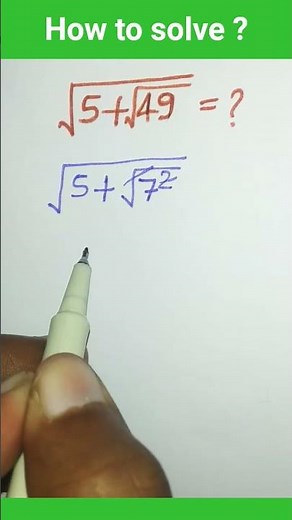 How to solve ?
√(5+√49) = ?
√(5+√7²)